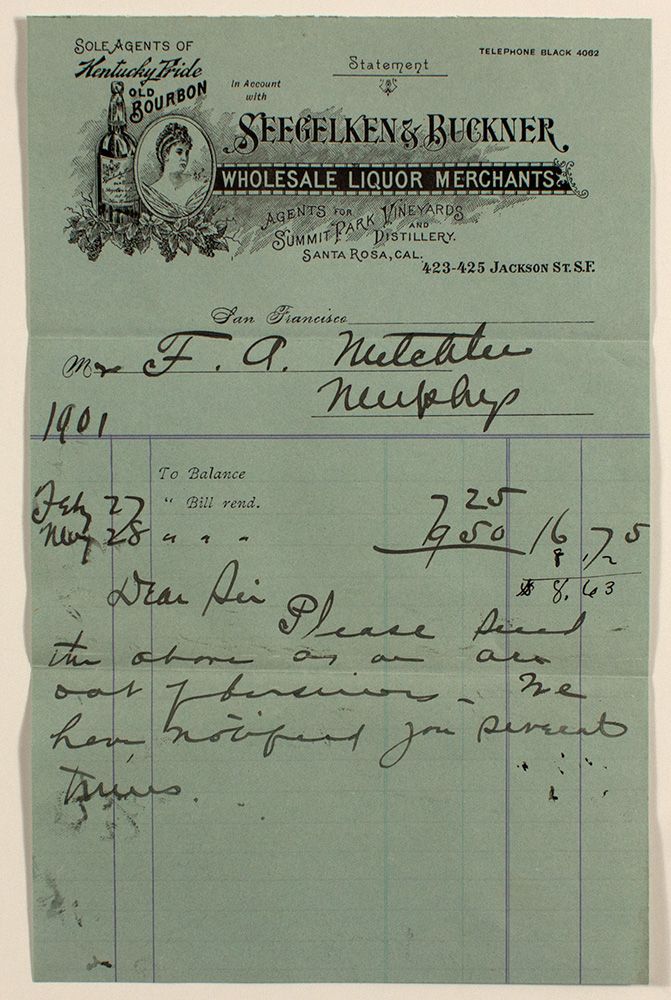 SOLE AGENTS OF
Kentucky Pride
OLD
BOURBON
Statement
TELEPHONE BLACK 4062
In Account
with
SEEGELKEN & BUCKNER
WHOLESALE LIQUOR MERCHANTS
AGENTS FOR
SUMMIT PARK VINEYARDS
AND
DISTILLERY.
SANTA ROSA, CAL.
423-425 JACKSON ST. S.F.
San Francisco
Mr F. A.
Murphys
1901
To Balance
Feby 27 " Bill rend. 7 25
28 " " " 9 50 16 75
8 12
$ 8.63
Dear Sir
Please send
the above as we are
out of business - We
have notified you several
times.